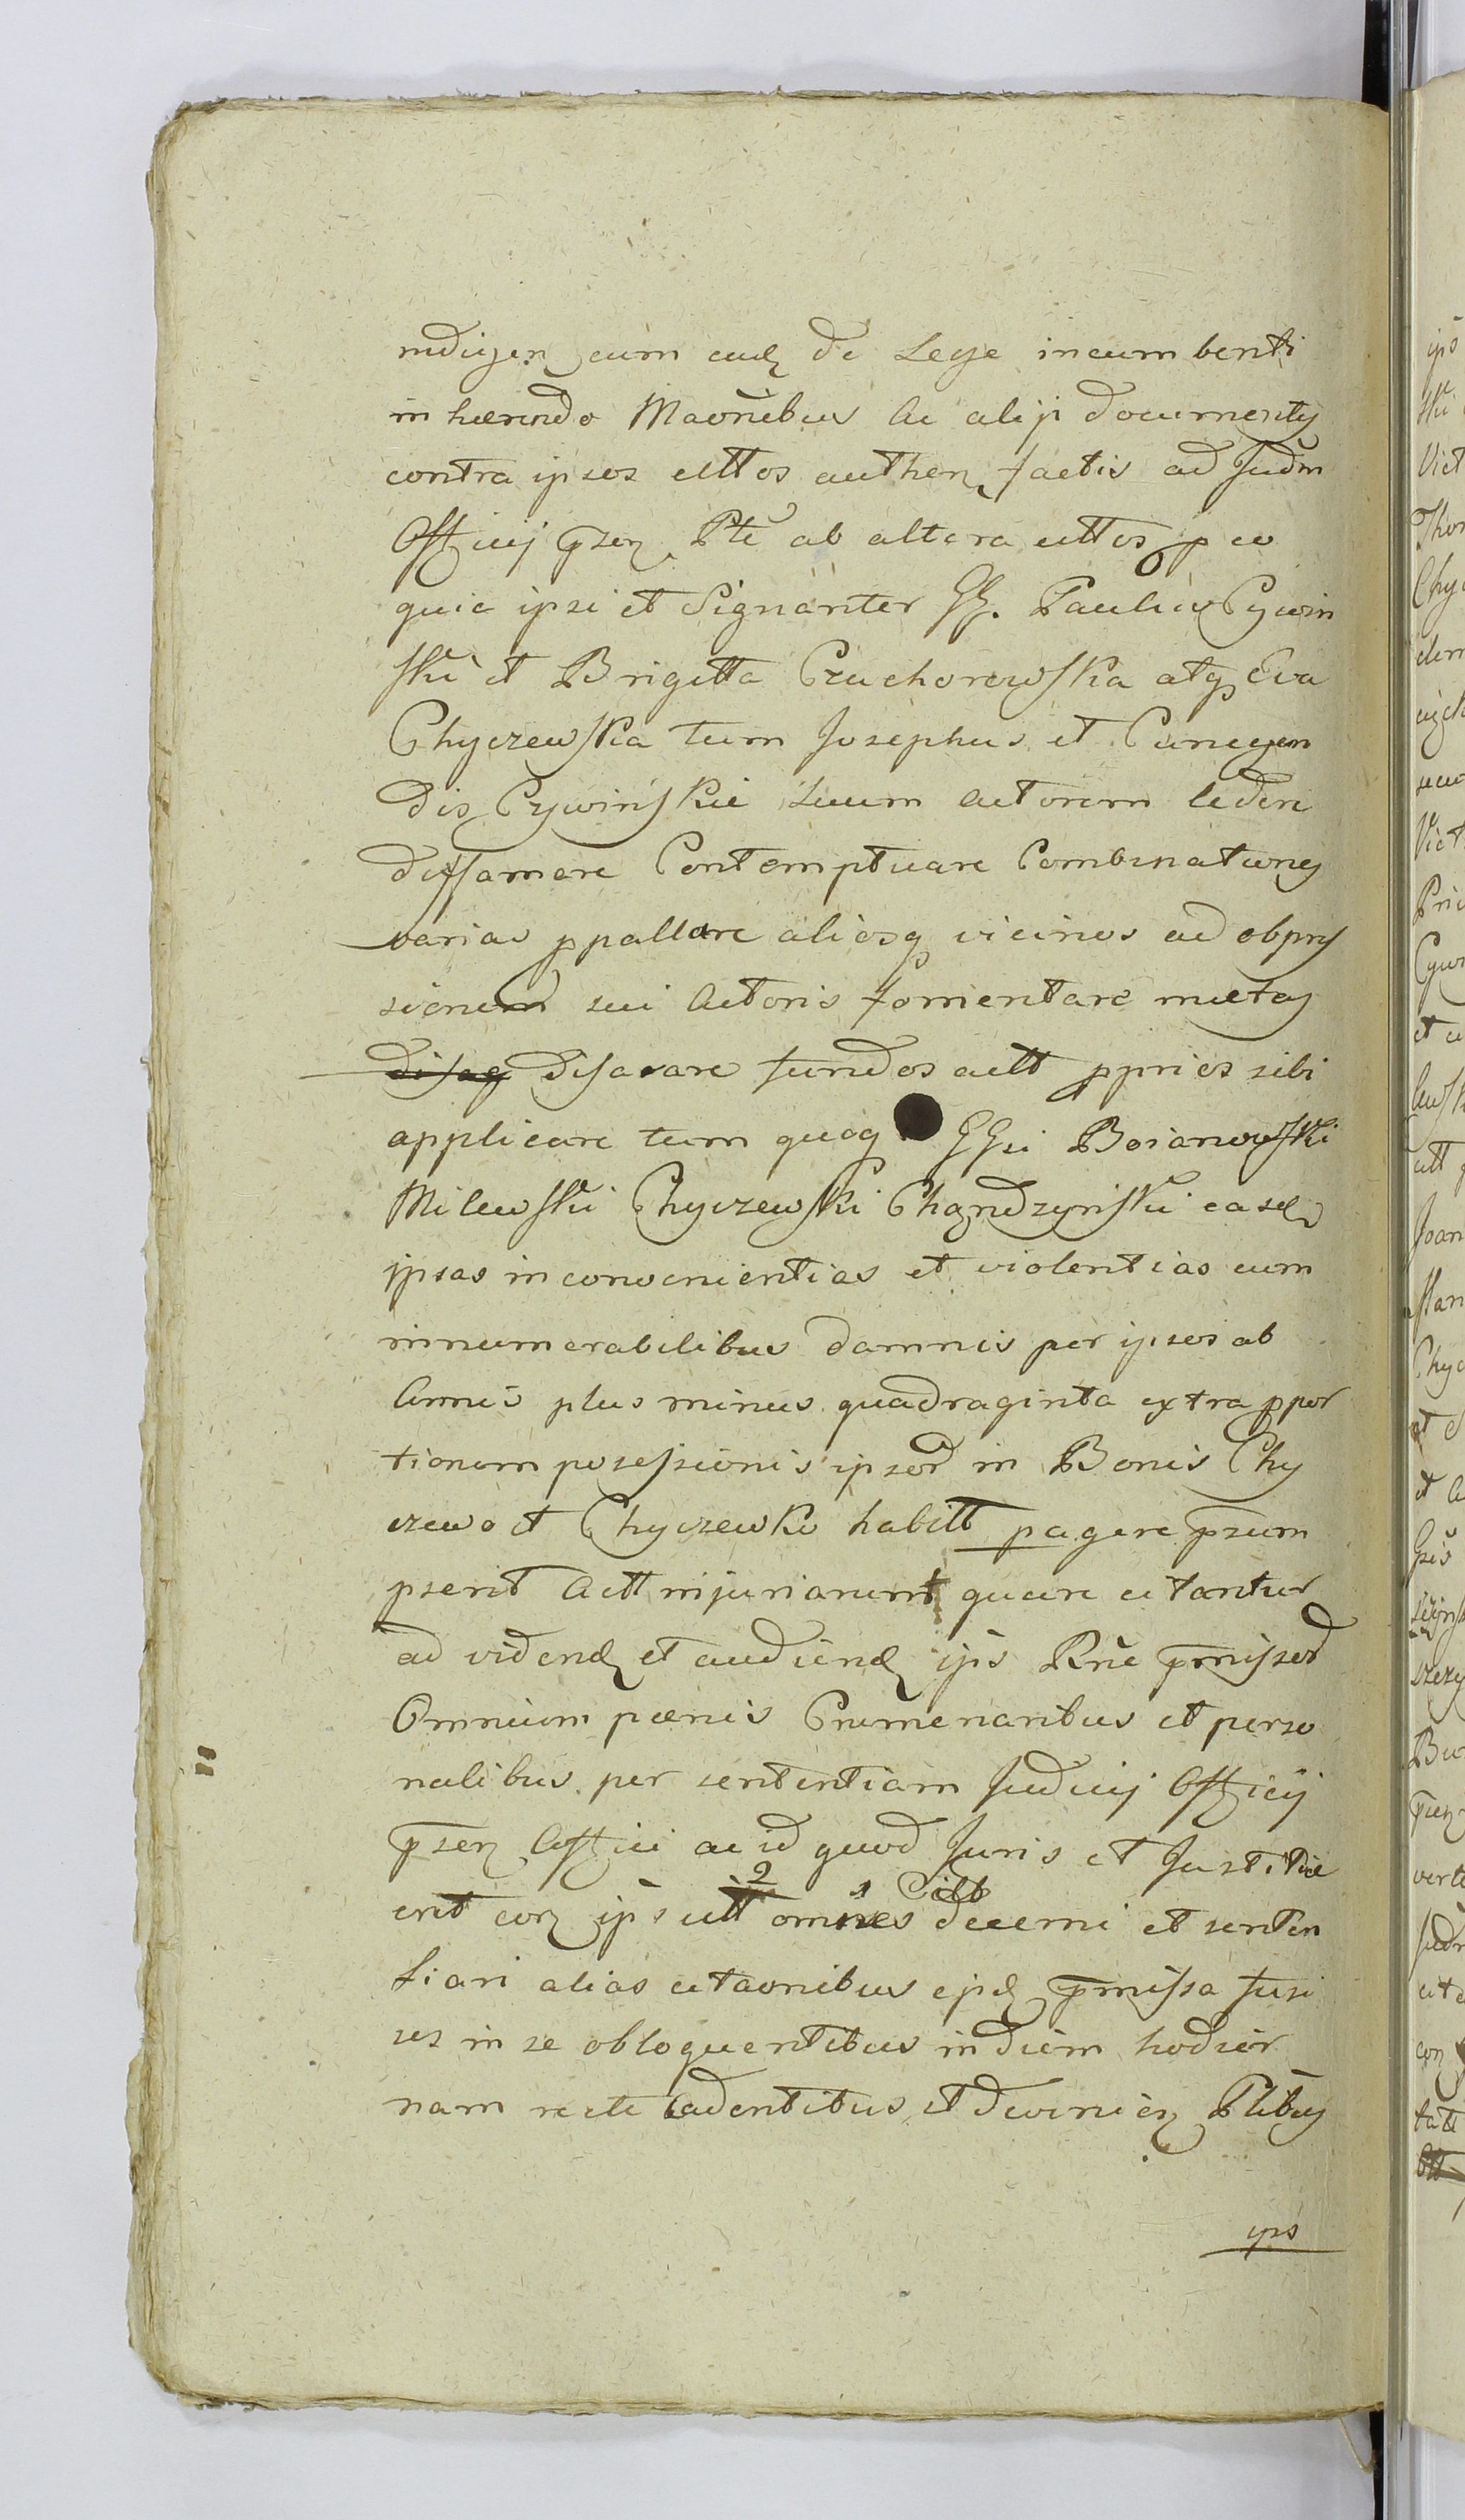 indigen cum eud de Lege incumbenti
in haerendo Maonibus ac alijs documentis
contra ipsos cittos authen factis ad Judm
Officij psen Pte ab altera cittos p eo
quia ipsi et Signanter GG. Paulus Cywin
ski et Brigitta Czuchorowska atq Eva
Chyczewska tum Josephus et Cunegun
dis Cywinskie suum actorem ledere
diffamare Contemptuare Combinationes
varias ppallare aliosq vicinos ad obpres
sionem sui Actoris fomentare metas
disag disarare fundos actt pprios sibi
applicare tum quoq GGsi Boianowski
Milewski Chyczewski Chądzynski easd
ipsas inconvenientias et violentias cum
innumerabilibus damnis per ipsos ab
Annis plus minus quadraginta extra ppor
tionem posessionis ipsor in Bonis Chy
czewo et Chyczewko habitt pagere psum
pserit Actt injuriarunt quare citantur
ad videnđ et audienđ ips Rne pmissor
Omnium paenis Crimenaribus et perso
nalibus per sententiam Judicij Officij
psen Affici ac id quod Juris et Justitiae
erit con ips citt 2 omnes 1 Citt decerni et senten
tiari alias citaonibus ejsd pmissa fusi
us in se obloquentibus in diem hodier
nam recte Cadentibus et devenien Ptibus
ips